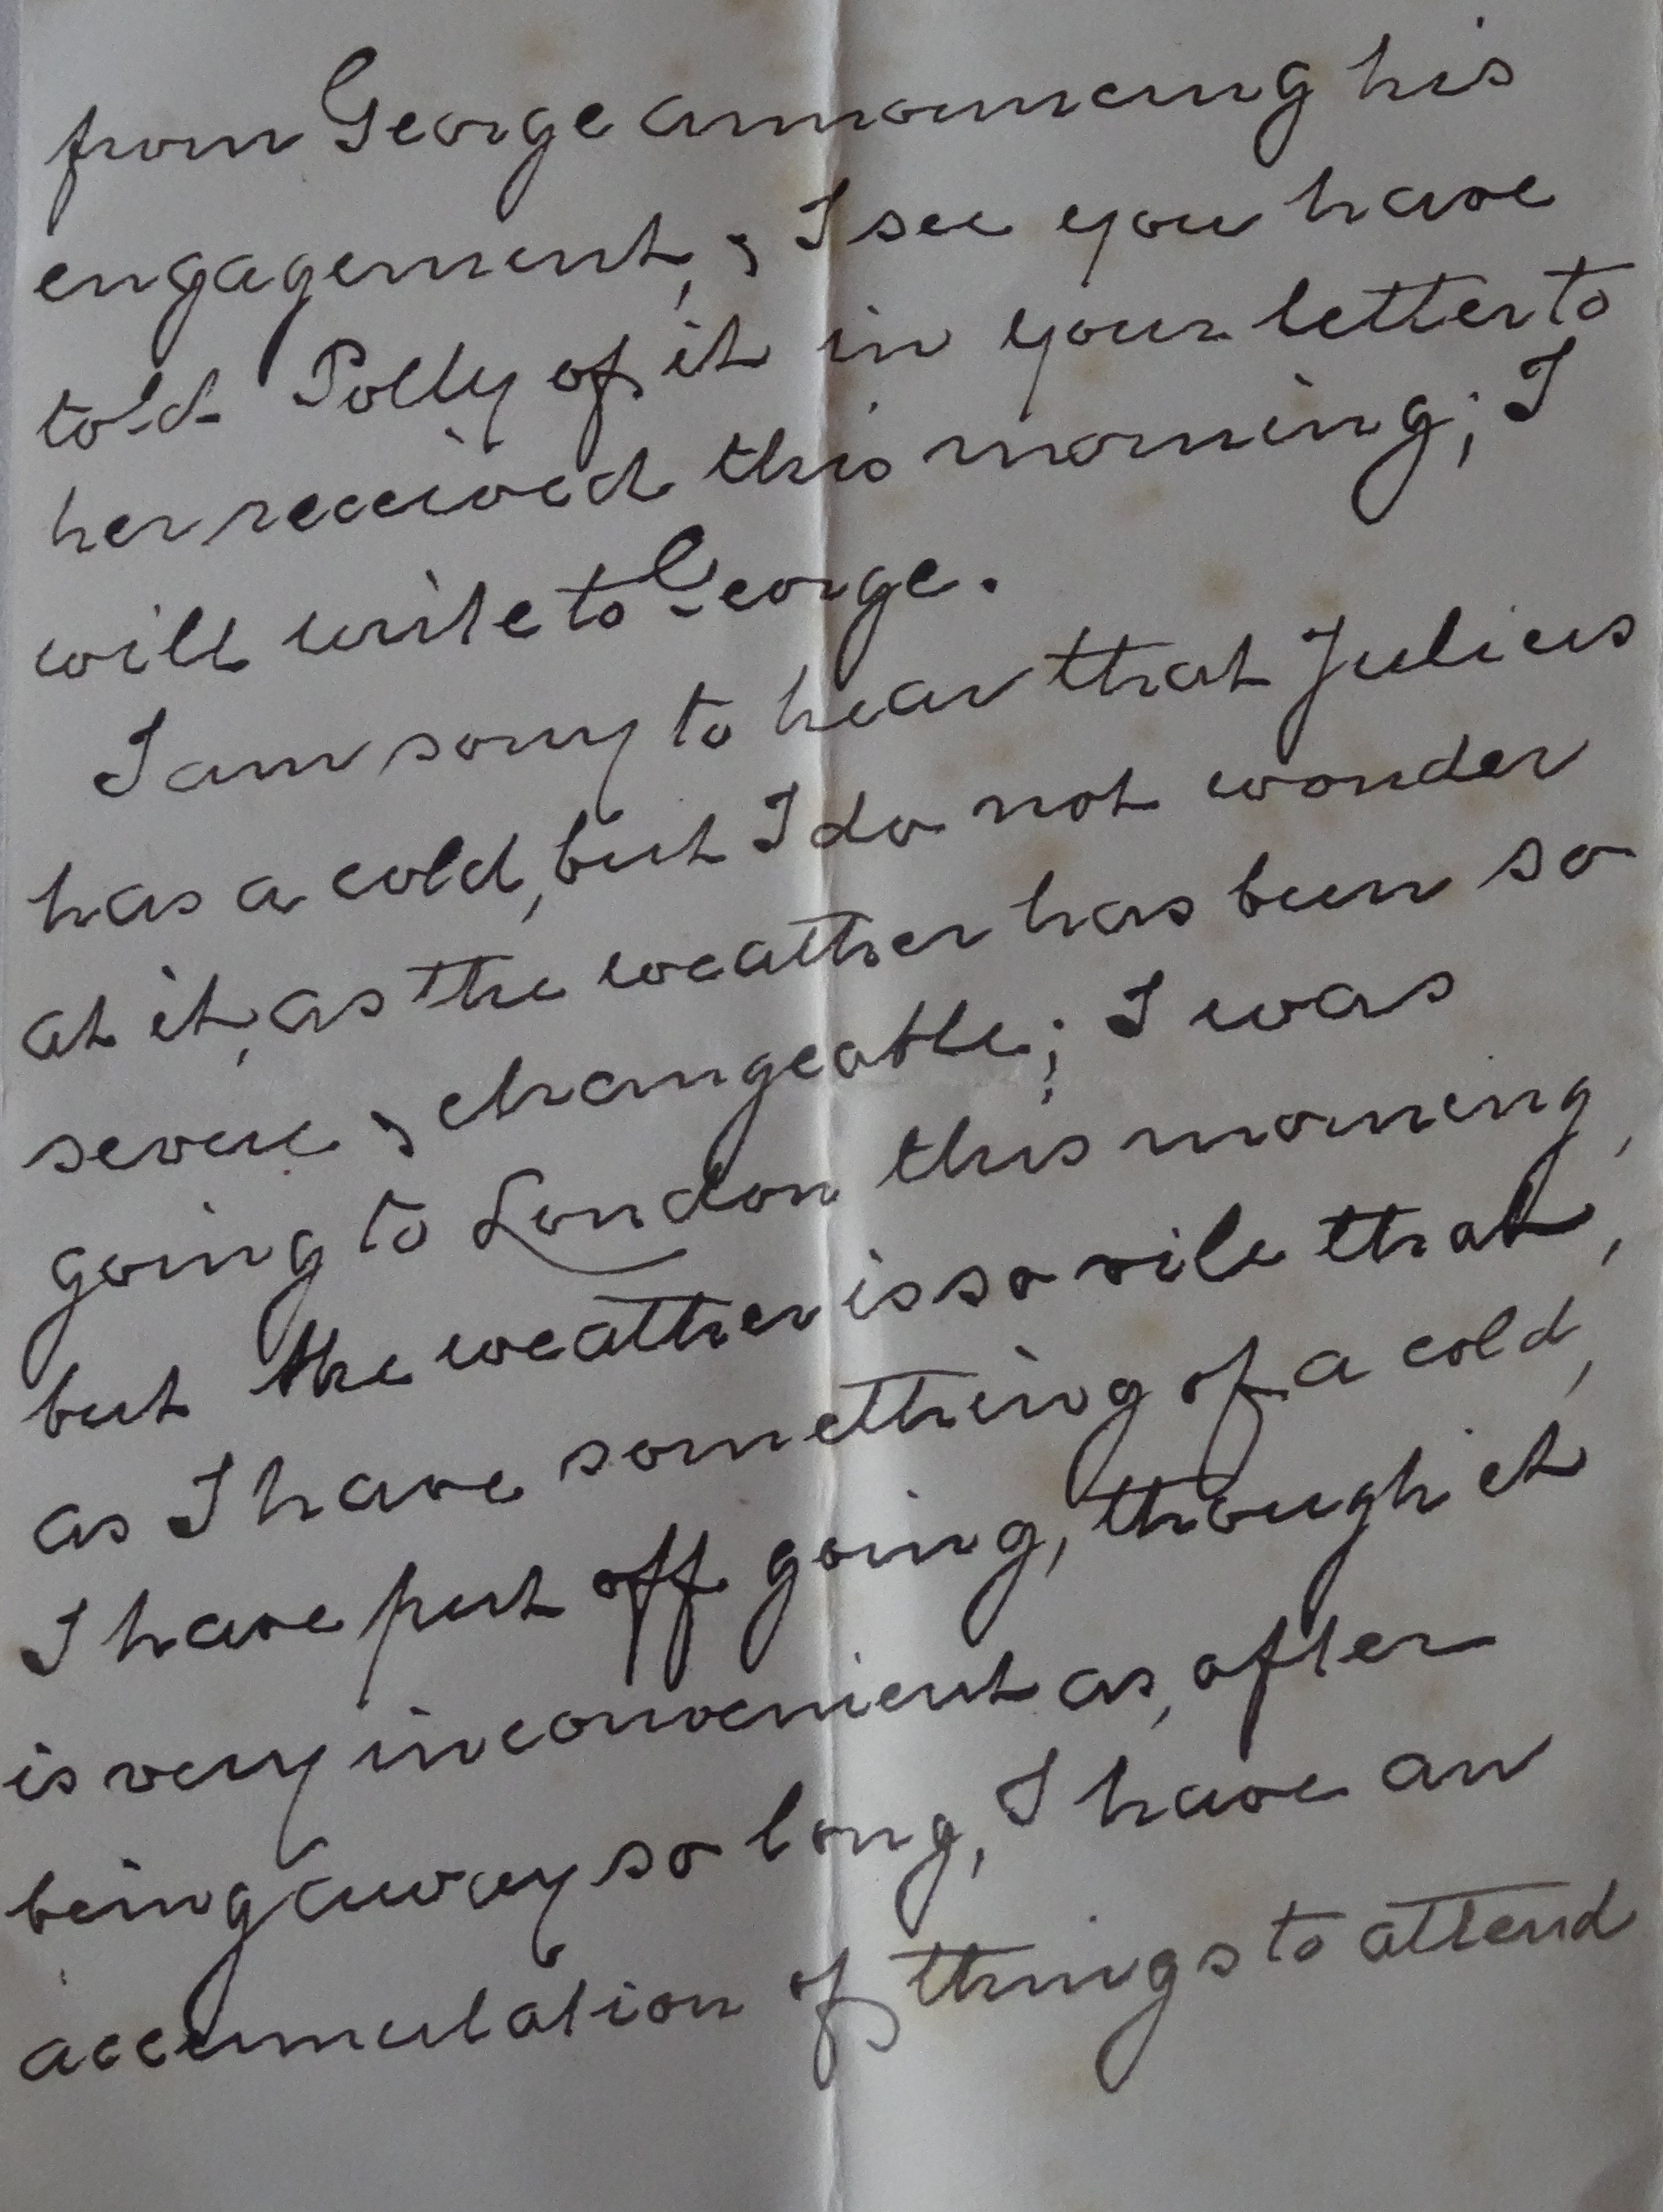 from George announcing his
engagement, & I see you have
told Polly of it in your letter to
her received this morning; I
will write to George.
I am sorry to hear that Julius
has a cold, but I do not wonder
at it, as the weather has been so
severe & changeable; I was
going to London this morning,
but the weather is so vile that,
as I have something of a cold,
I have put off going, though it
is very inconvenient as, after
being away so long, I have an
accumulation of things to attend